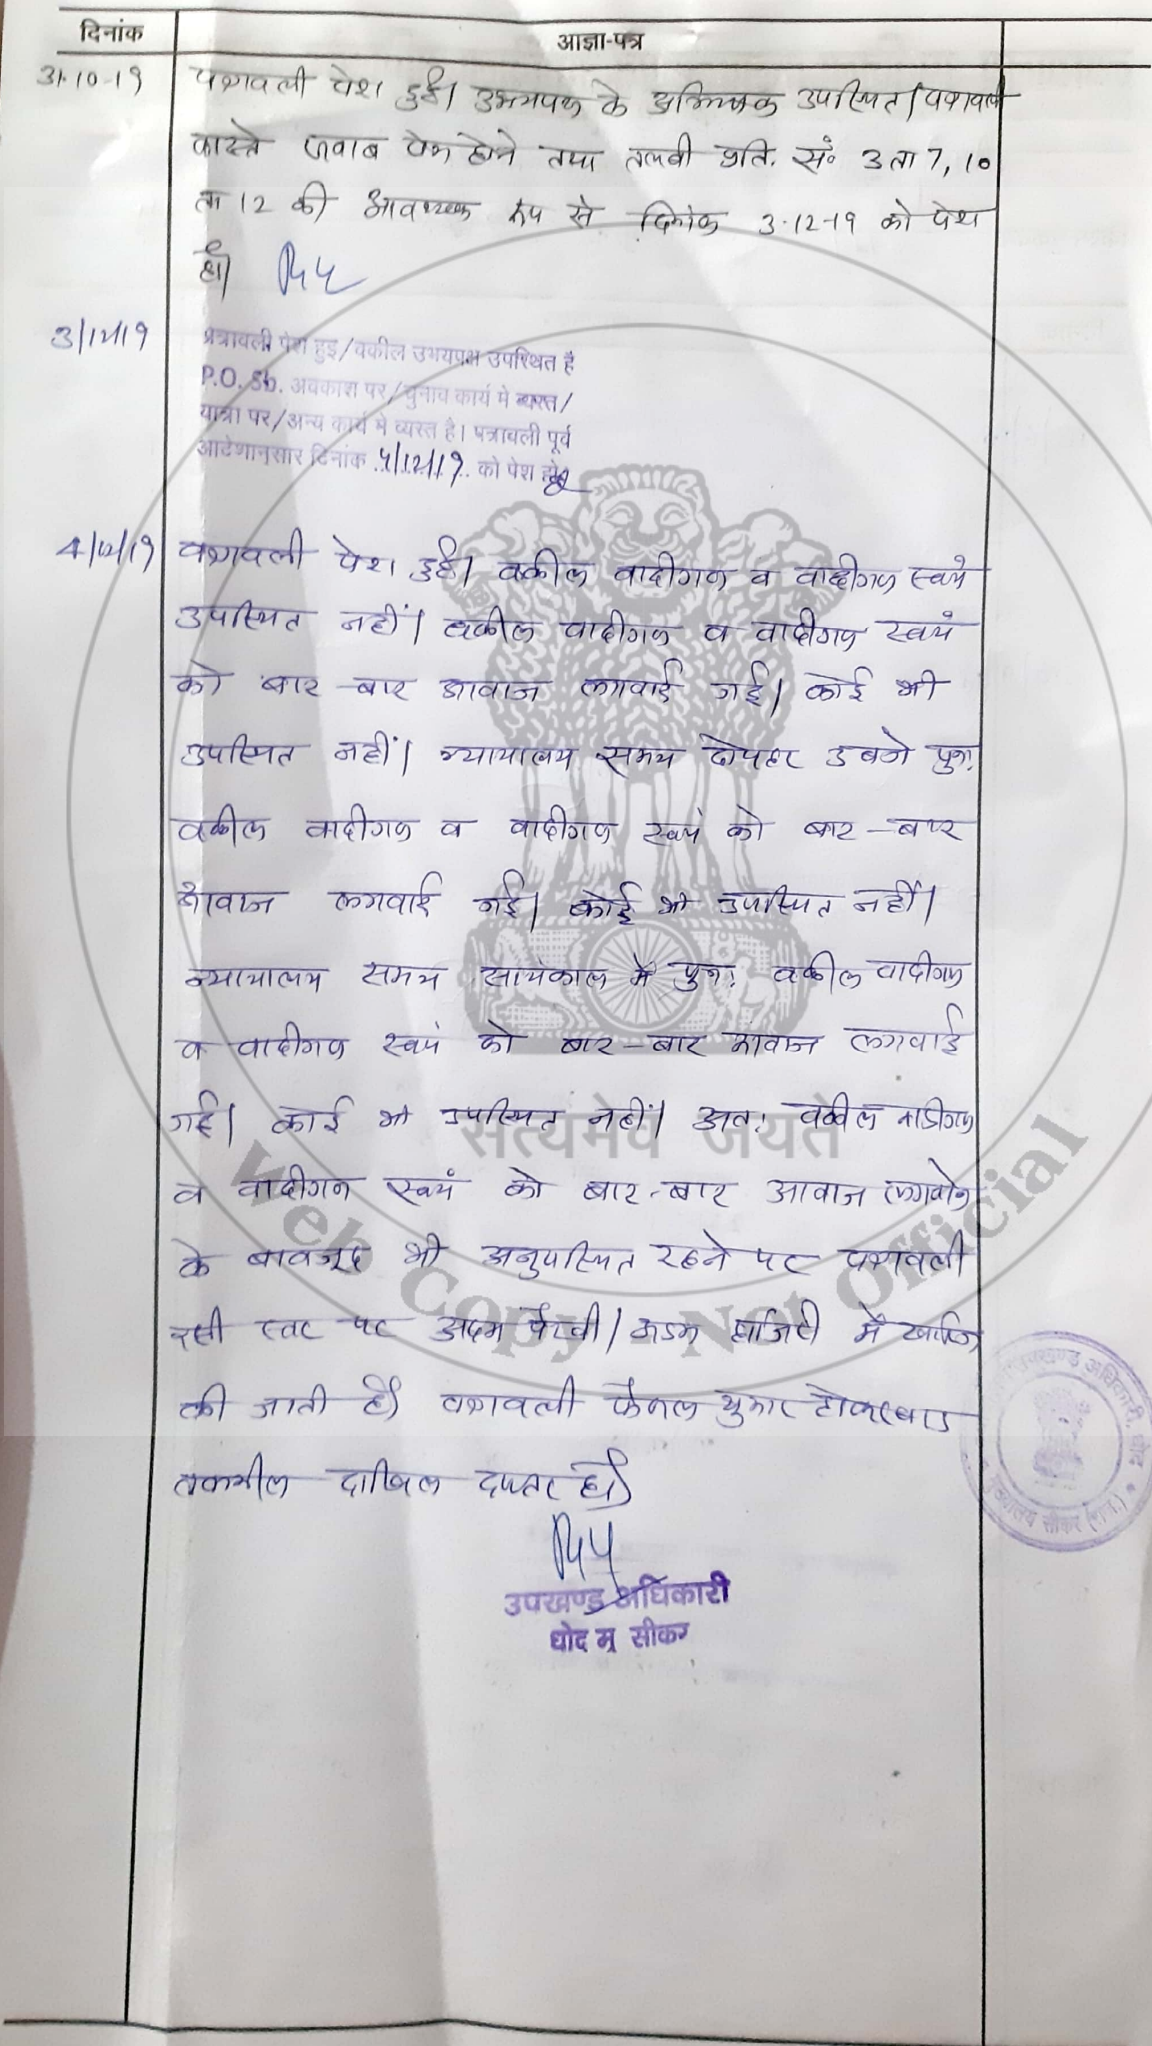 दिनांक
आज्ञा-पत्र
31-10-19 पत्रावली पेश हुई। उभयपक्ष के अभिभाषक उपस्थित। पत्रावली
वास्ते जवाब पेश होने तथा तलबी प्रति. सं॰ 3 ता 7, 10
ता 12 की आवश्यक रूप से दिनांक 3-12-19 को पेश
हो।
3/12/19
पत्रावली पेश हुइ/वकील उभयपक्ष उपस्थित है
P.O. Sb. अवकाश पर/चुनाव कार्य मे व्यस्त/
यात्रा पर/अन्य कार्य मे व्यस्त है। पत्रावली पूर्व
आदेशानुसार दिनांक 4/12/19 को पेश हो
4/12/19 पत्रावली पेश हुई। वकील वादीगण व वादीगण स्वयं
उपस्थित नहीं। वकील वादीगण व वादीगण स्वयं
को बार-बार आवाज लगवाई गई। कोई भी
उपस्थित नहीं। न्यायालय समय दोपहर 3 बजे पुन:
वकील वादीगण व वादीगण स्वयं को बार-बार
आवाज लगवाई गई। कोई भी उपस्थित नहीं।
न्यायालय समय सायंकाल में पुन: वकील वादीगण
व वादीगण स्वयं को बार-बार आवाज लगवाई
गई। कोई भी उपस्थित नहीं। अत: वकील वादीगण
व वादीगण स्वयं को बार-बार आवाज लगवाने
के बावजूद भी अनुपस्थित रहने पर पत्रावली
इसी स्तर पर अदम पैरवी/अदम हाजिरी में खारिज
की जाती है। पत्रावली फैसल शुमार होकर बाद
तकमील दाखिल दफ्तर हो।
उपखण्ड अधिकारी
धोद मु सीकर
उपखण्ड अधिकारी, धोद
मुख्यालय सीकर (राज.)
सत्यमेव जयते
Web Copy - Not Official